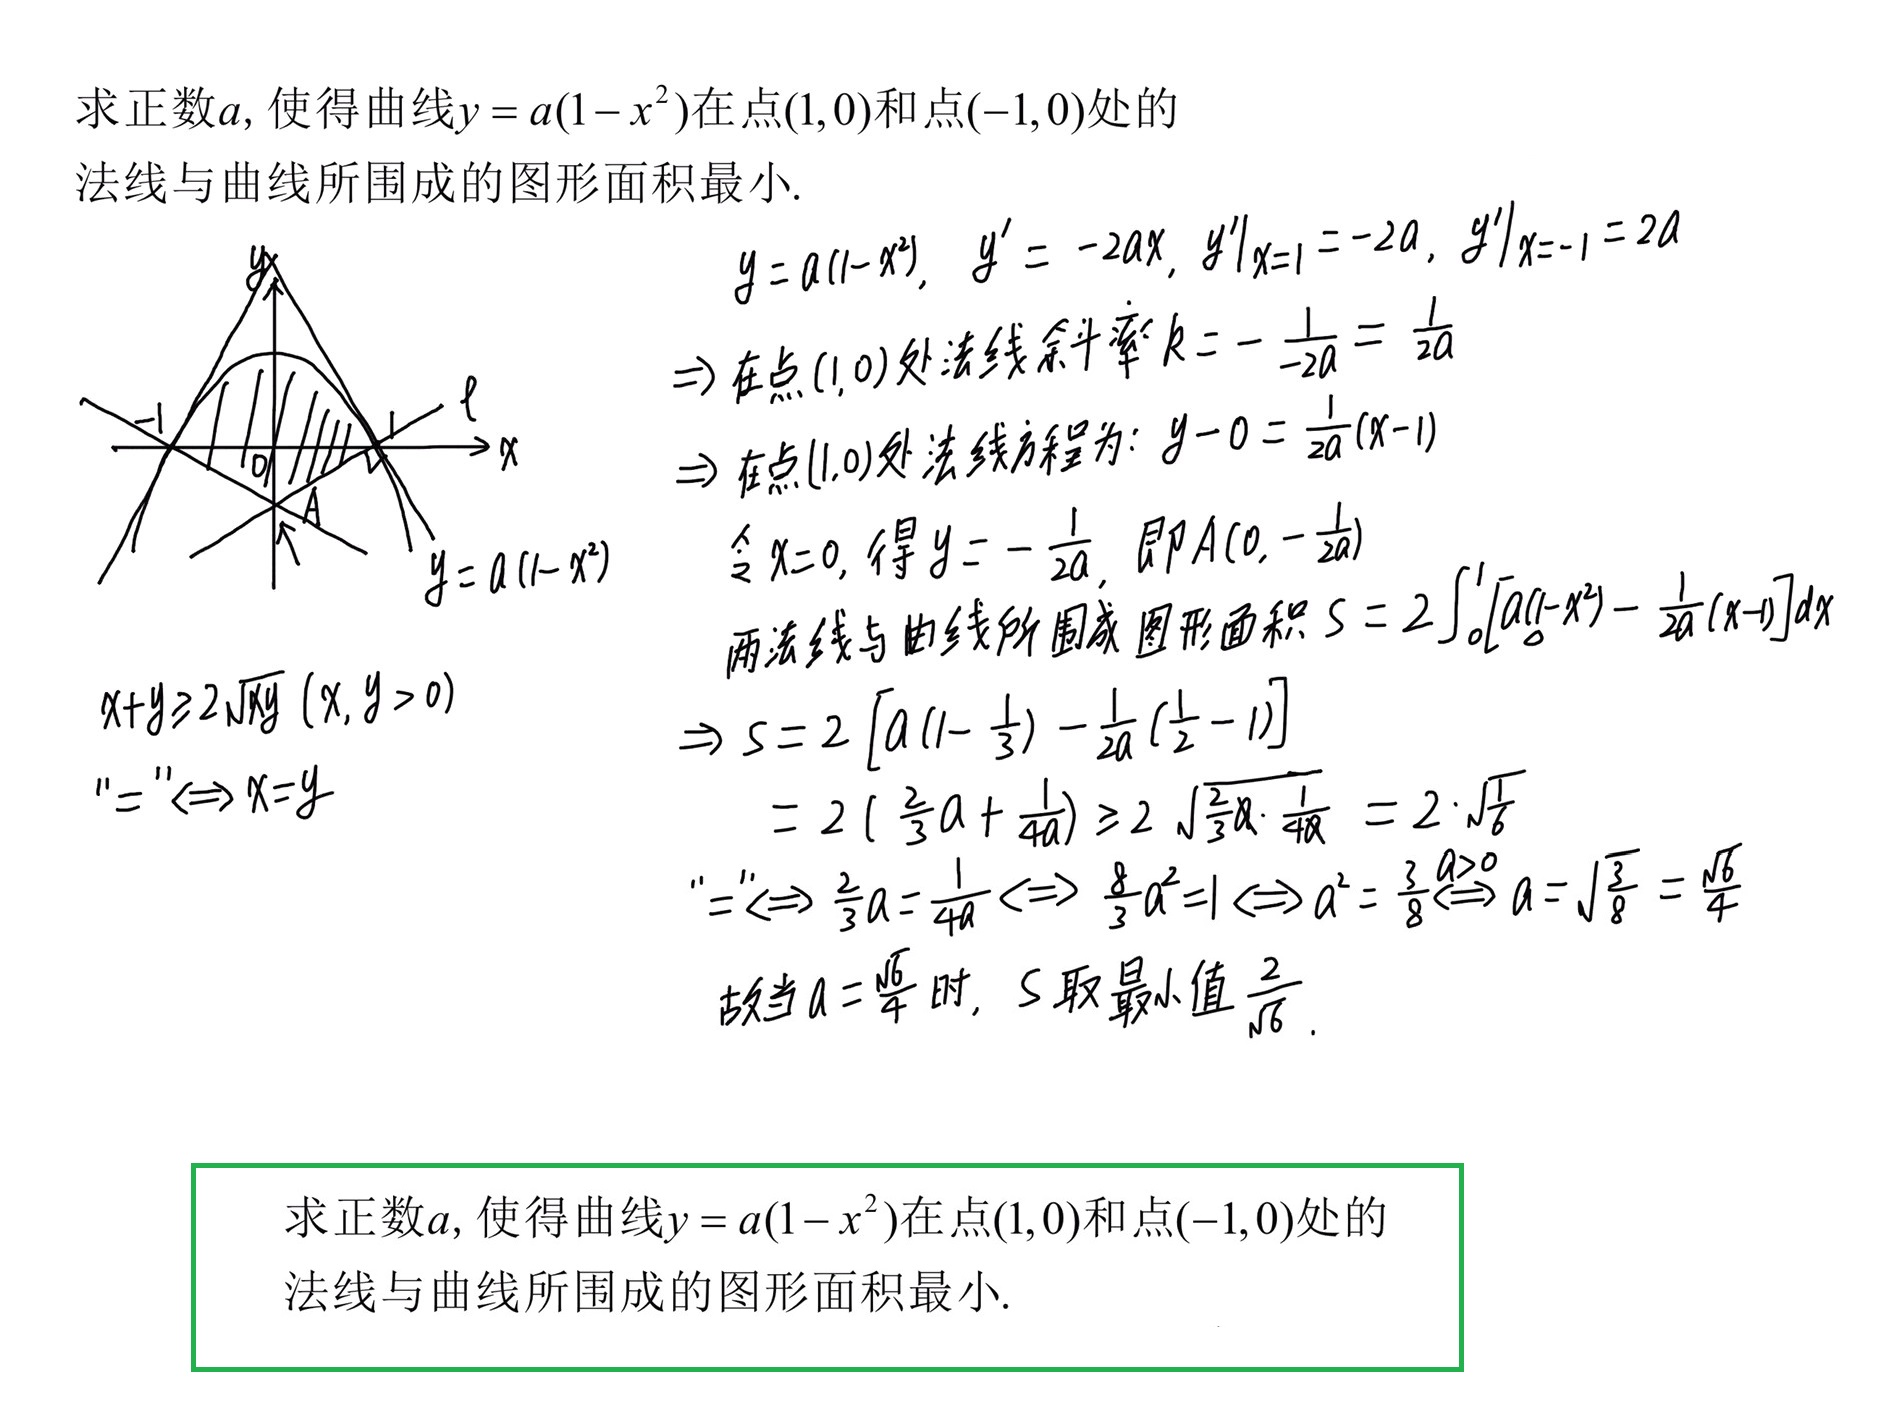 求正数a, 使得曲线y = a(1 − x²)在点(1,0)和点(−1,0)处的
法线与曲线所围成的图形面积最小.
y
-1
1
l
x
0
A
y = a(1-x²)
x+y≥2√xy (x, y > 0)
"="⟺ x=y
y = a(1-x²), y' = -2ax, y'|x=1 = -2a, y'|x=-1 = 2a
⇒ 在点(1,0)处法线斜率 k = - 1/(-2a) = 1/(2a)
⇒ 在点(1,0)处法线方程为: y-0 = 1/(2a) (x-1)
令x=0, 得 y = - 1/(2a), 即A(0, - 1/(2a))
两法线与曲线所围成图形面积 S = 2∫₀¹[a(1-x²) - 1/(2a) (x-1)]dx
⇒ S = 2[a(1- 1/3) - 1/(2a) (1/2 - 1)]
= 2( 2/3 a + 1/(4a)) ≥ 2 √(2/3 a · 1/(4a)) = 2·√(1/6)
"="⟺ 2/3 a = 1/(4a) ⟺ 8/3 a² = 1 ⟺ a² = 3/8 a>0 ⟺ a = √(3/8) = √6/4
故当 a = √6/4 时, S取最小值 2/√6 .
求正数a, 使得曲线y = a(1 − x²)在点(1,0)和点(−1,0)处的
法线与曲线所围成的图形面积最小.